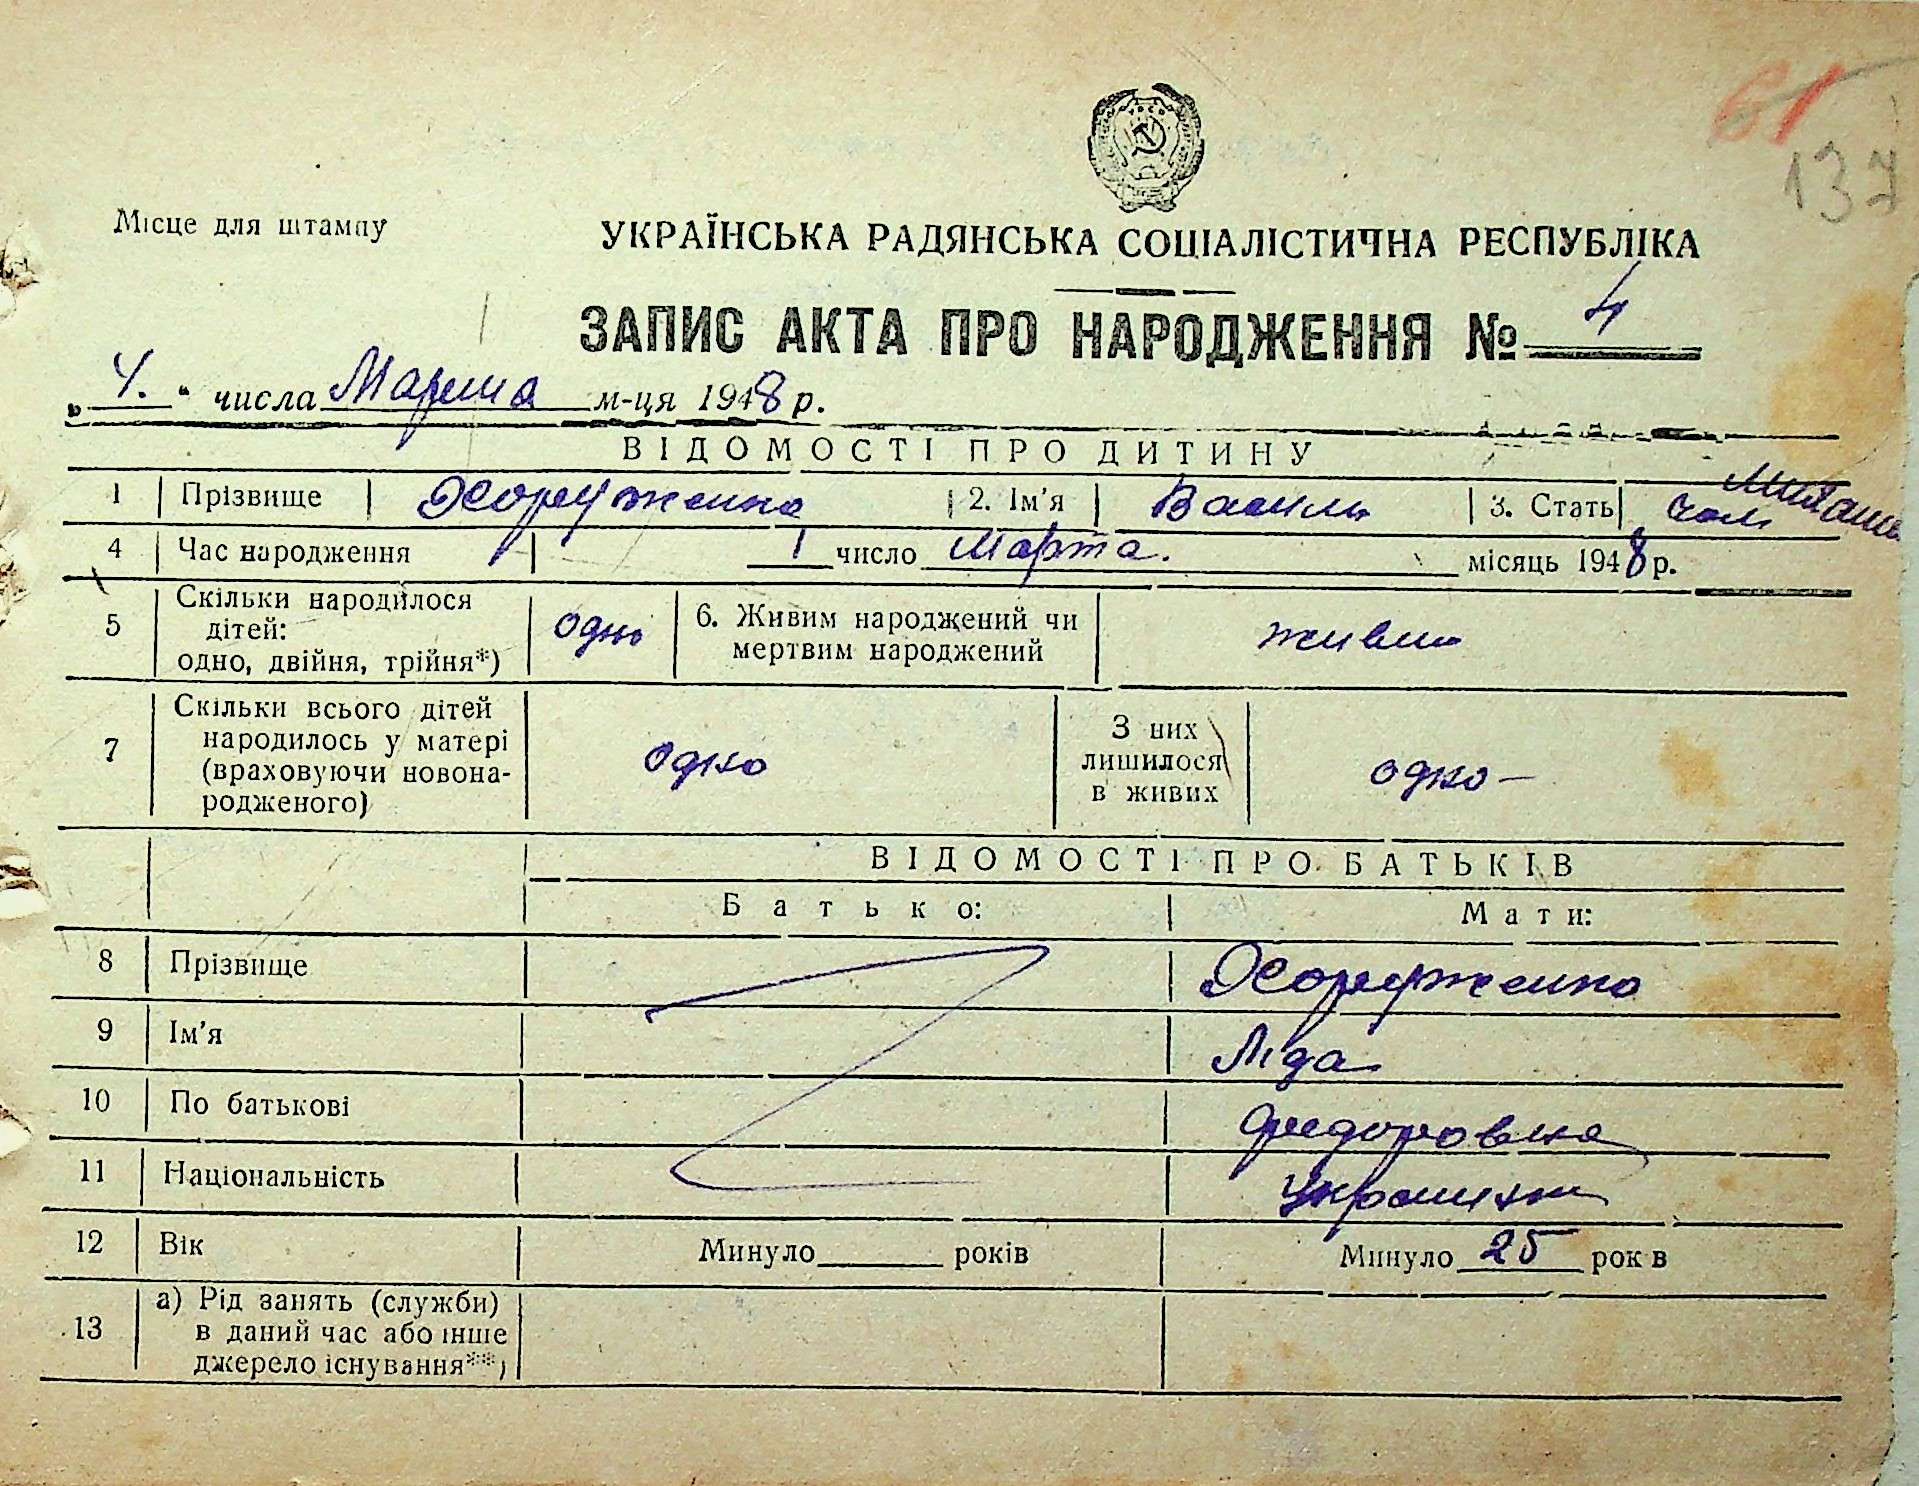 61
137
Місце для штампу
УКРАЇНСЬКА РАДЯНСЬКА СОЦІАЛІСТИЧНА РЕСПУБЛІКА
ЗАПИС АКТА ПРО НАРОДЖЕННЯ № 4
„4." числа Марта м-ця 1948 р.
ВІДОМОСТІ ПРО ДИТИНУ
1 Прізвище Хоруженко 2. Ім'я Василь 3. Стать чол
4 Час народження 1 число Марта. місяць 1948 р.
5 Скільки народилося дітей: одно, двійня, трійня*) одно 6. Живим народжений чи мертвим народжений живим
7 Скільки всього дітей народилось у матері (враховуючи новонародженого) одно З них лишилося в живих одно
ВІДОМОСТІ ПРО БАТЬКІВ
Батько: Мати:
8 Прізвище Хоруженко
9 Ім'я Ліда
10 По батькові Федоровна
11 Національність
12 Вік Минуло років Минуло 25 рок в
13 а) Рід занять (служби) в даний час або інше джерело існування**)